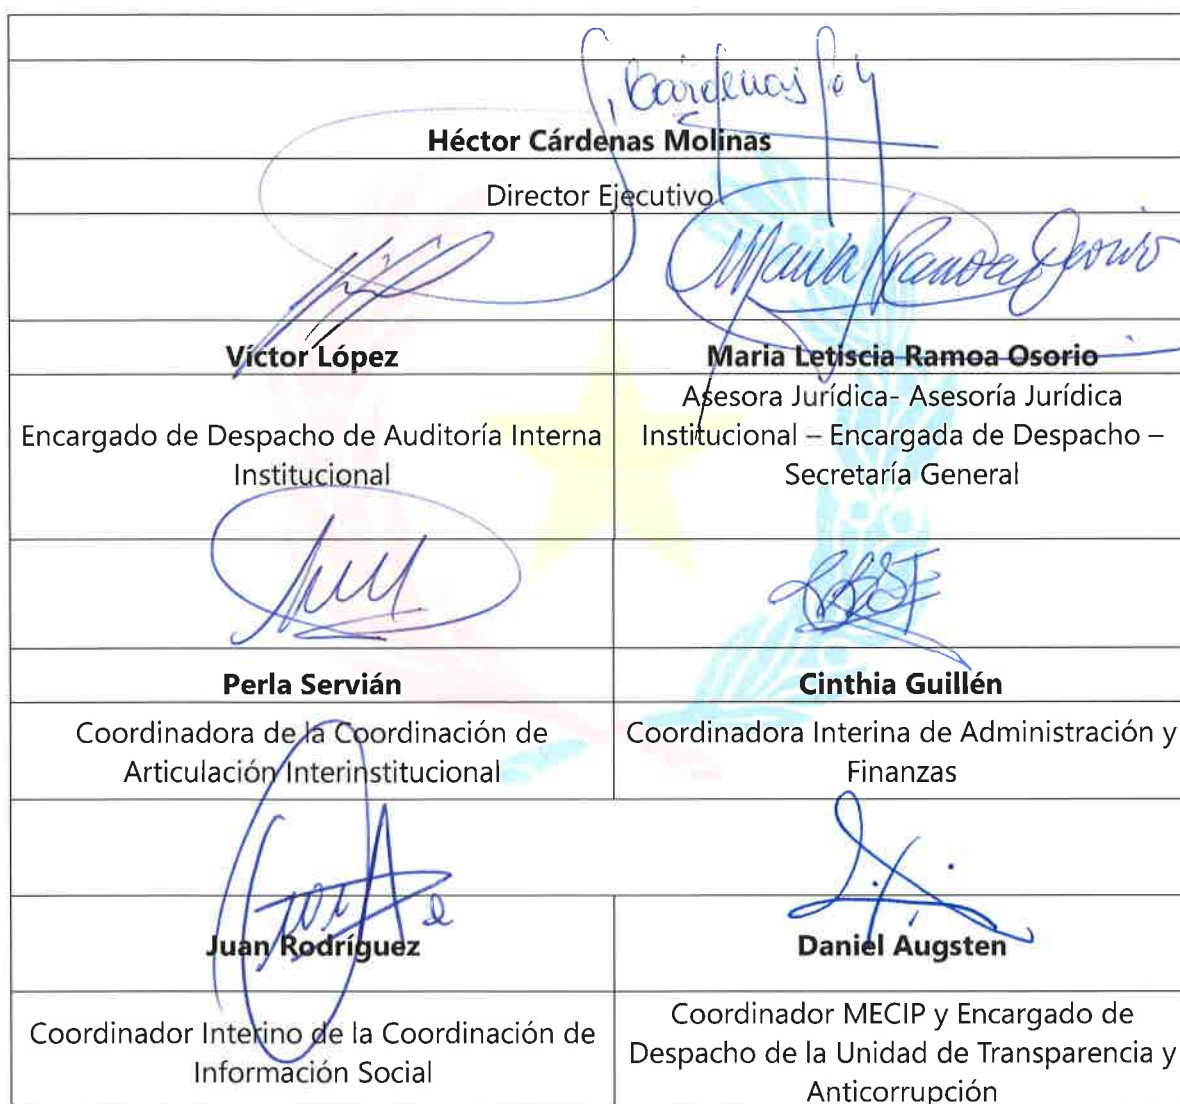 Cárdenas
Héctor Cárdenas Molinas
Director Ejecutivo
Maria Ramoa Osorio
Víctor López
Maria Letiscia Ramoa Osorio
Encargado de Despacho de Auditoría Interna
Institucional
Asesora Jurídica- Asesoría Jurídica
Institucional – Encargada de Despacho –
Secretaría General
Perla Servián
Cinthia Guillén
Coordinadora de la Coordinación de
Articulación Interinstitucional
Coordinadora Interina de Administración y
Finanzas
Juan Rodríguez
Daniel Augsten
Coordinador Interino de la Coordinación de
Información Social
Coordinador MECIP y Encargado de
Despacho de la Unidad de Transparencia y
Anticorrupción